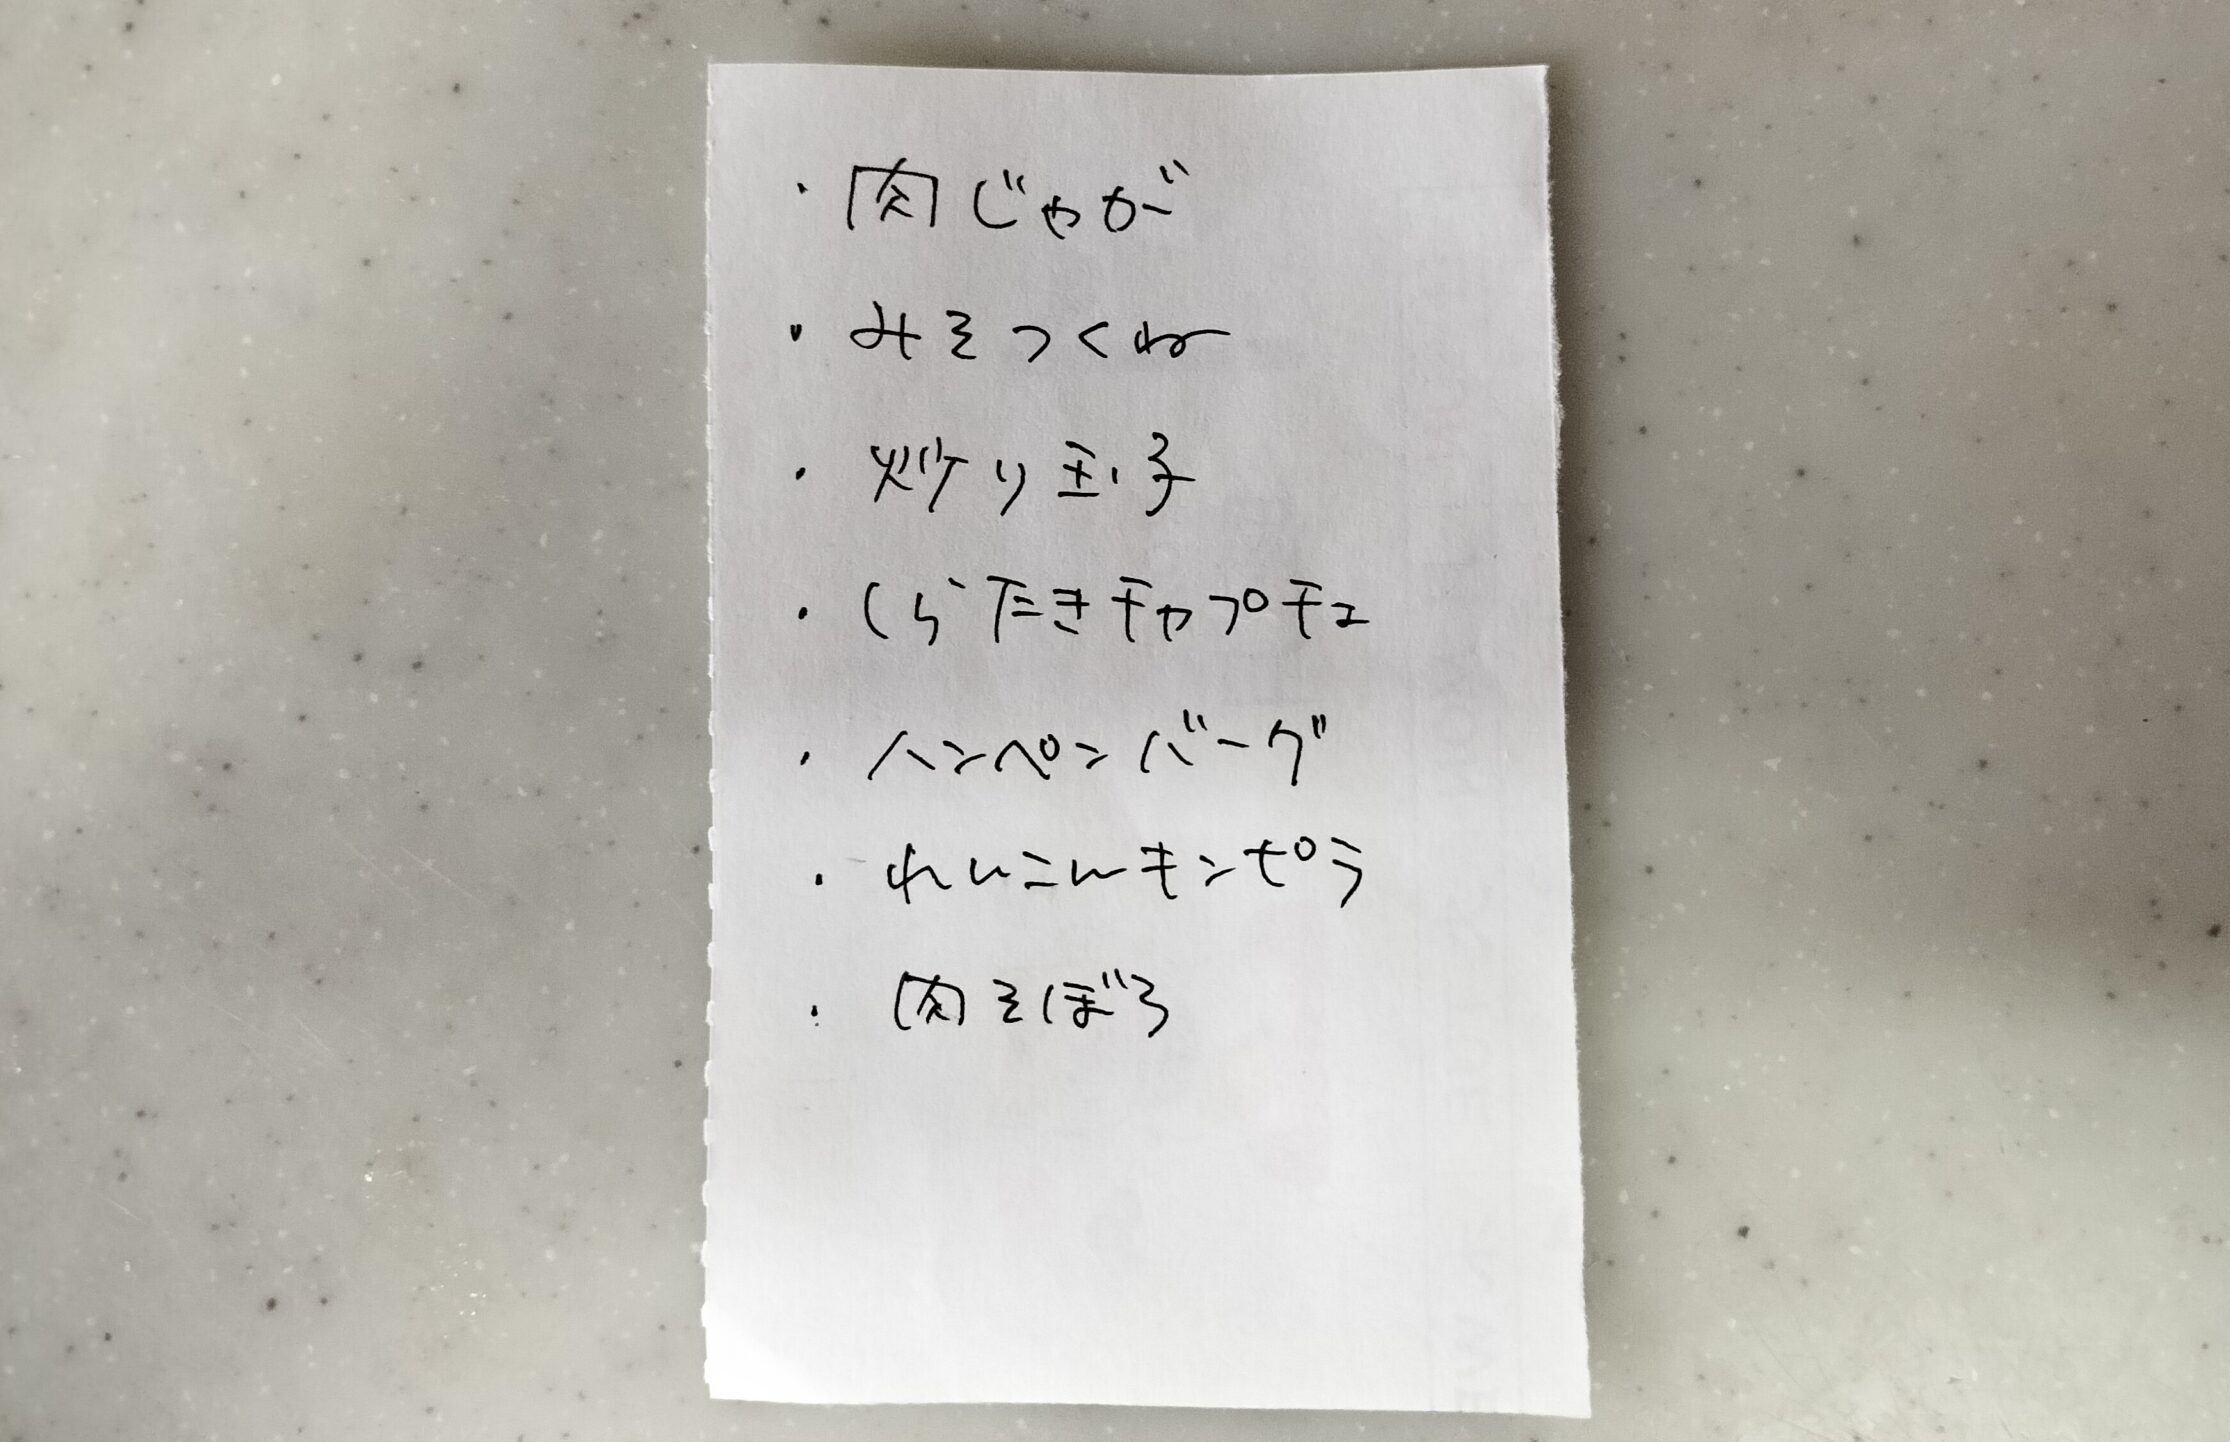 ・肉じゃが
・みそつくね
・炒り玉子
・しらたきチャプチェ
・ハンペンバーグ
・れんこんキンピラ
・肉そぼろ